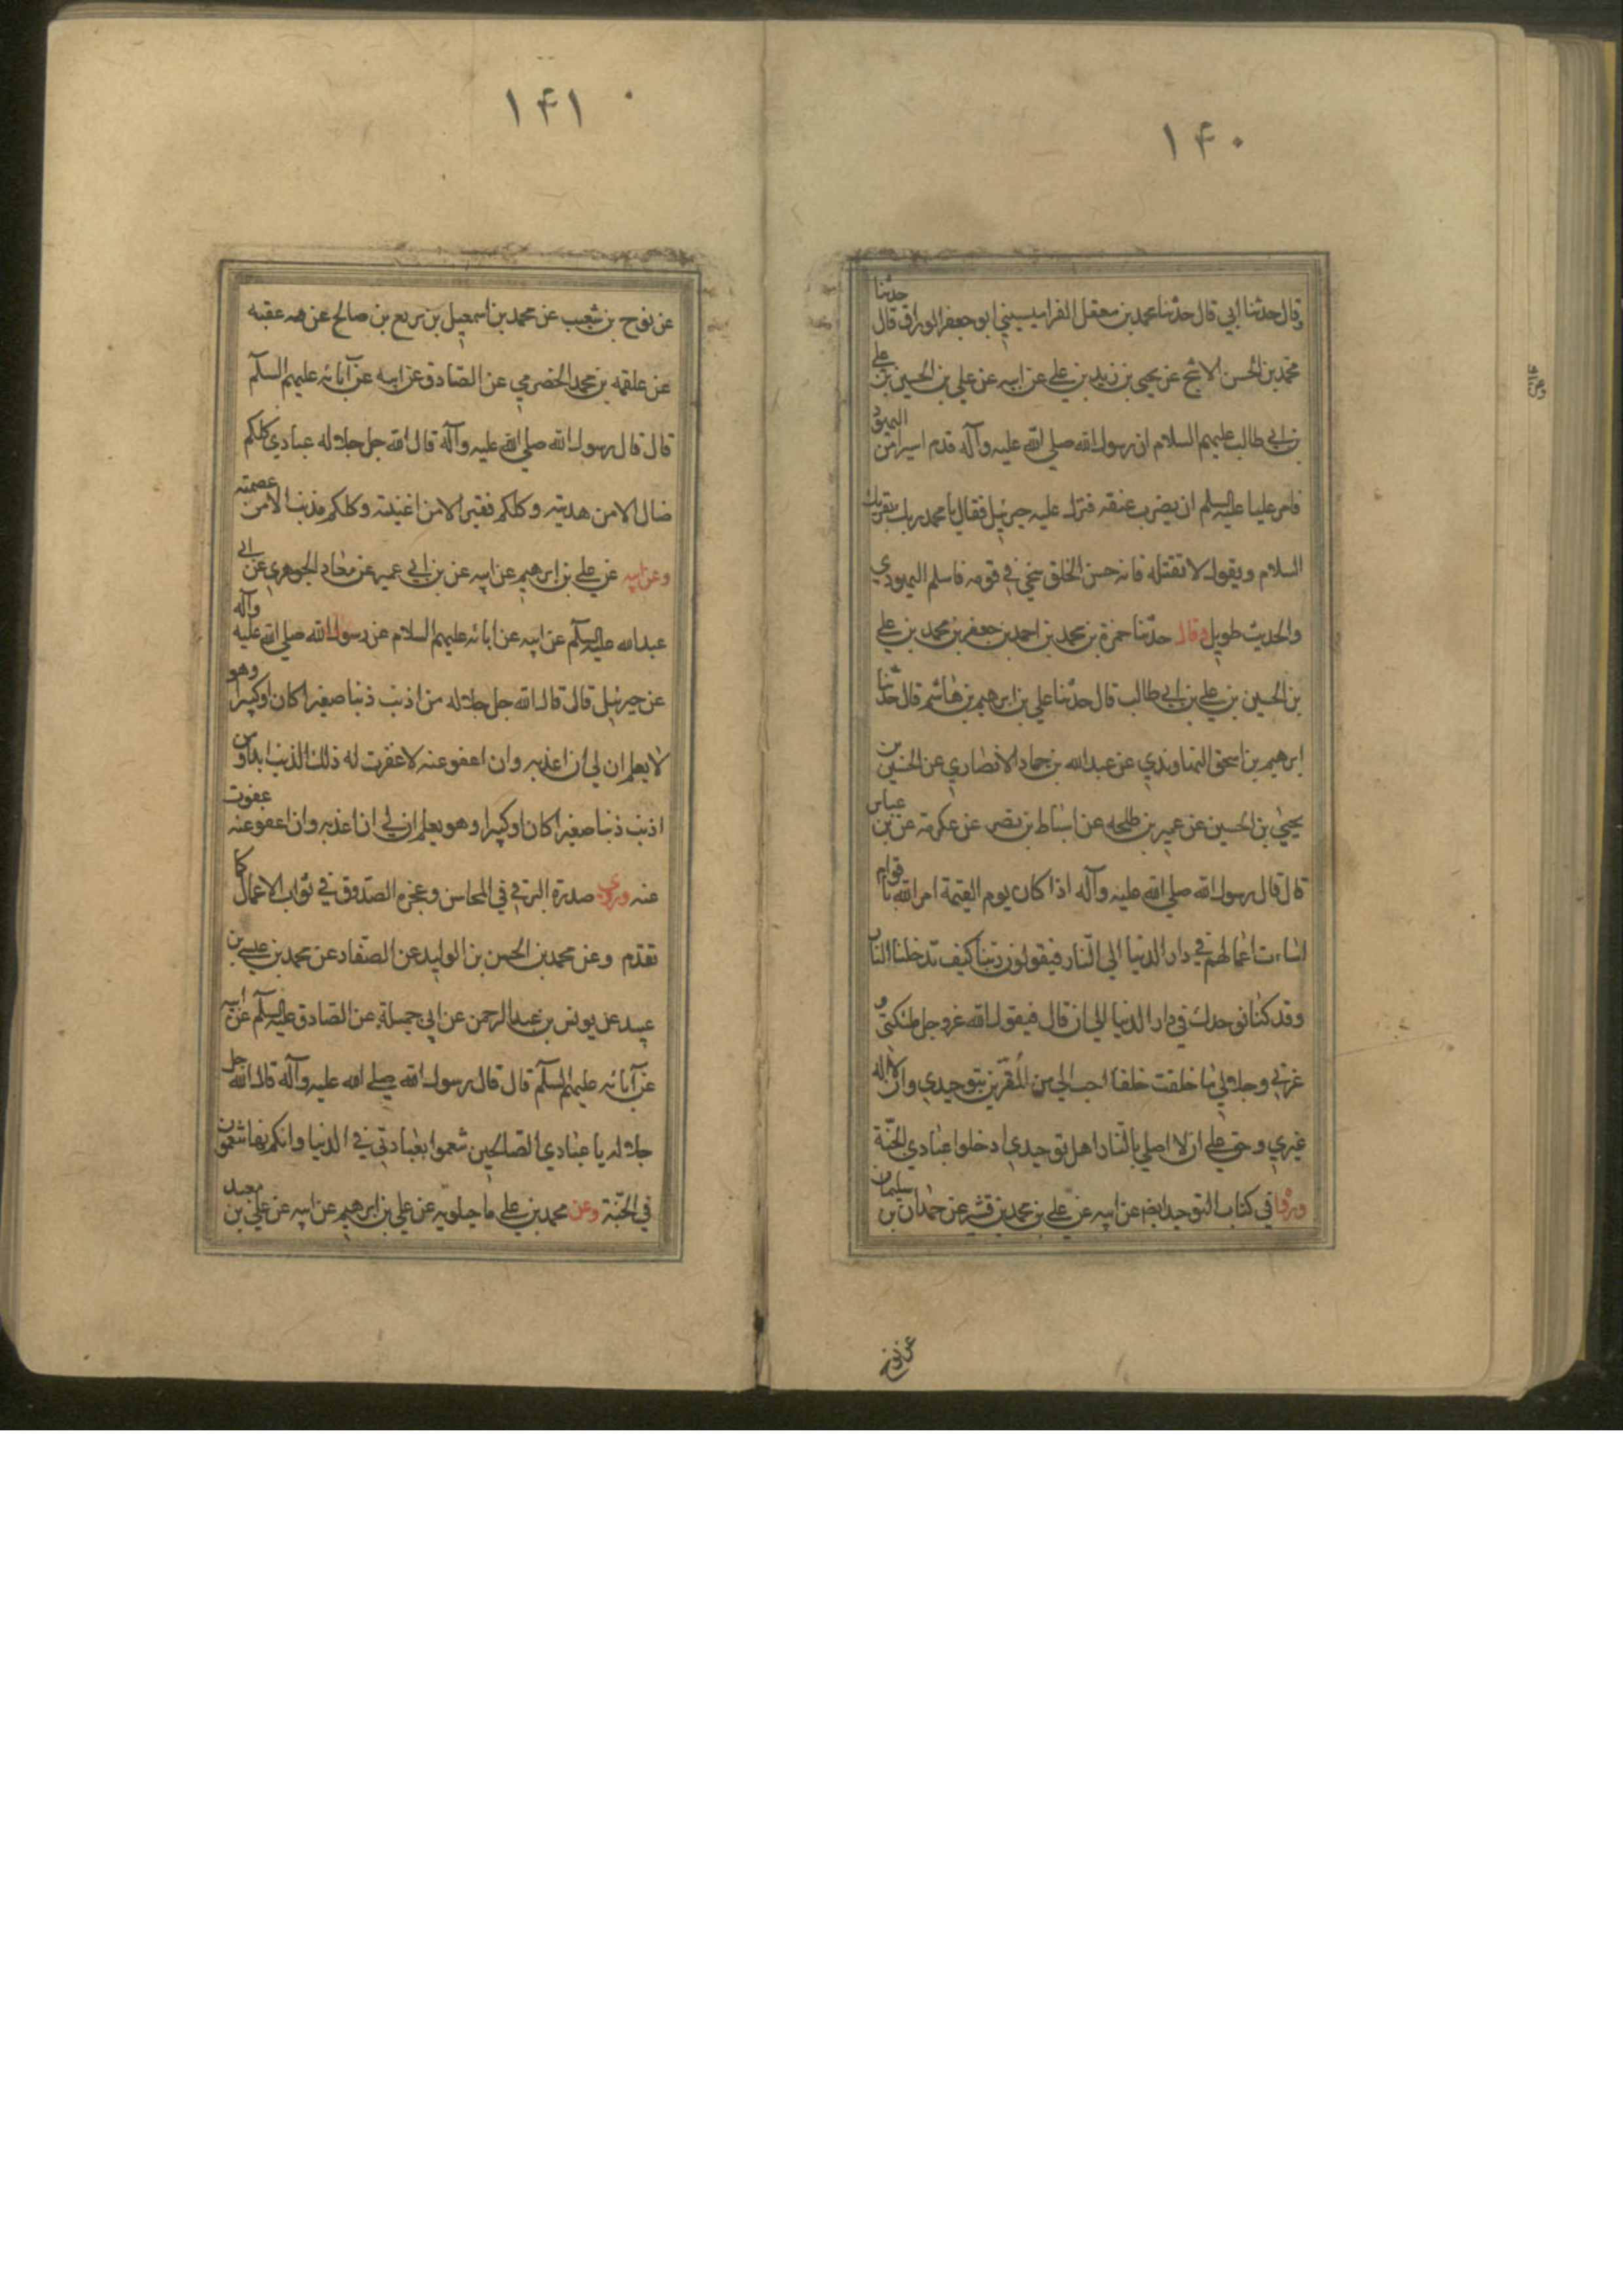 ۱۴۰
وقال حدثنا ابي قال حدثنا محمد بن معقل القراميسيني ابو جعفر الوراق قال حدثنا
محمد بن الحسن الاشج عن يحيى بن زيد بن علي عن ابيه عن علي بن الحسين بن علي
بن ابي طالب عليهم السلام ان رسول الله صلي الله عليه وآله قدم اسير من اليهود
فامر عليا عليه السلم ان يضرب عنقه فنزل عليه جبرئيل فقال يا محمد ربك يقريك
السلام ويقول لا تقتله فانه حسن الخلق سخي في قومه فاسلم اليهودي
والحديث طويل وقال حدثنا حمزة بن محمد بن احمد بن جعفر بن محمد بن علي
بن الحسين بن علي بن ابي طالب قال حدثنا علي بن ابرهيم بن هاشم قال حدثنا
ابرهيم بن اسحق النهاوندي عن عبدالله بن حماد الانصاري عن الحسين بن
يحيى بن الحسين عن عمير بن طلحه عن اسباط بن نصر عن عكرمة عن بن عباس
قال قال رسول الله صلي الله عليه وآله اذا كان يوم القيمة امر الله باقوام
اساءت اعمالهم في دار الدنيا الي النار فيقولون ربنا كيف تدخلنا النار
وقد كنا نوحدك في دار الدنيا الي ان قال فيقول الله عز وجل ملئكتي و
عزتي وجلالي ما خلقت خلقا احب الي من المقرين بتوحيدي وان لا اله
غيري وحق علي ان لا اصلي بالنار اهل توحيدي ادخلوا عبادي الجنة
وروا في كتاب التوحيد ايضا عن ابيه عن علي بن محمد بن قتيبه عن حمدان بن سليمان
عن نوح
۱۴۱
عن نوح بن شعيب عن محمد بن اسمعيل بن بزيع بن صالح عن عقبه
عن علقمه بن محمد الحضرمي عن الصادق عن ابيه عن آبائه عليهم السلم
قال قال رسول الله صلي الله عليه وآله قال الله جل جلاله عبادي كلكم
ضال الا من هديته وكلكم فقير الا من اغنيته وكلكم مذنب الا من عصمته
وعن ابيه عن علي بن ابرهيم عن ابيه عن بن ابي عمير عن معاد الجوهري عن ابي
عبدالله عليه السلم عن ابيه عن ابائه عليهم السلام عن رسول الله صلي الله عليه وآله
عن جبرئيل قال قال الله جل جلاله من اذنب ذنبا صغيرا كان او كبيرا وهو
لا يعلم ان لي ان اعذبه وان اعفو عنه لا غفرت له ذلك الذنب ابدا ومن
اذنب ذنبا صغيرا كان او كبيرا وهو يعلم ان لي ان اعذبه وان اعفو عنه عفوت
عنه وروي صدره البرقي في المحاسن وعجزه الصدوق في ثواب الاعمال كا
تقدم وعن محمد بن الحسن بن الوليد عن الصفار عن محمد بن عيسي بن
عبيد عن يونس بن عبدالرحمن عن ابي جميلة عن الصادق عليه السلم عن ابيه
عن آبائه عليهم السلم قال قال رسول الله صلي الله عليه وآله قال الله جل
جلاله يا عبادي الصالحين تنعموا بعبادتي في الدنيا وانكم بها تنعمون
في الجنة وعن محمد بن علي ماجيلويه عن علي بن ابرهيم عن ابيه عن علي بن معبد